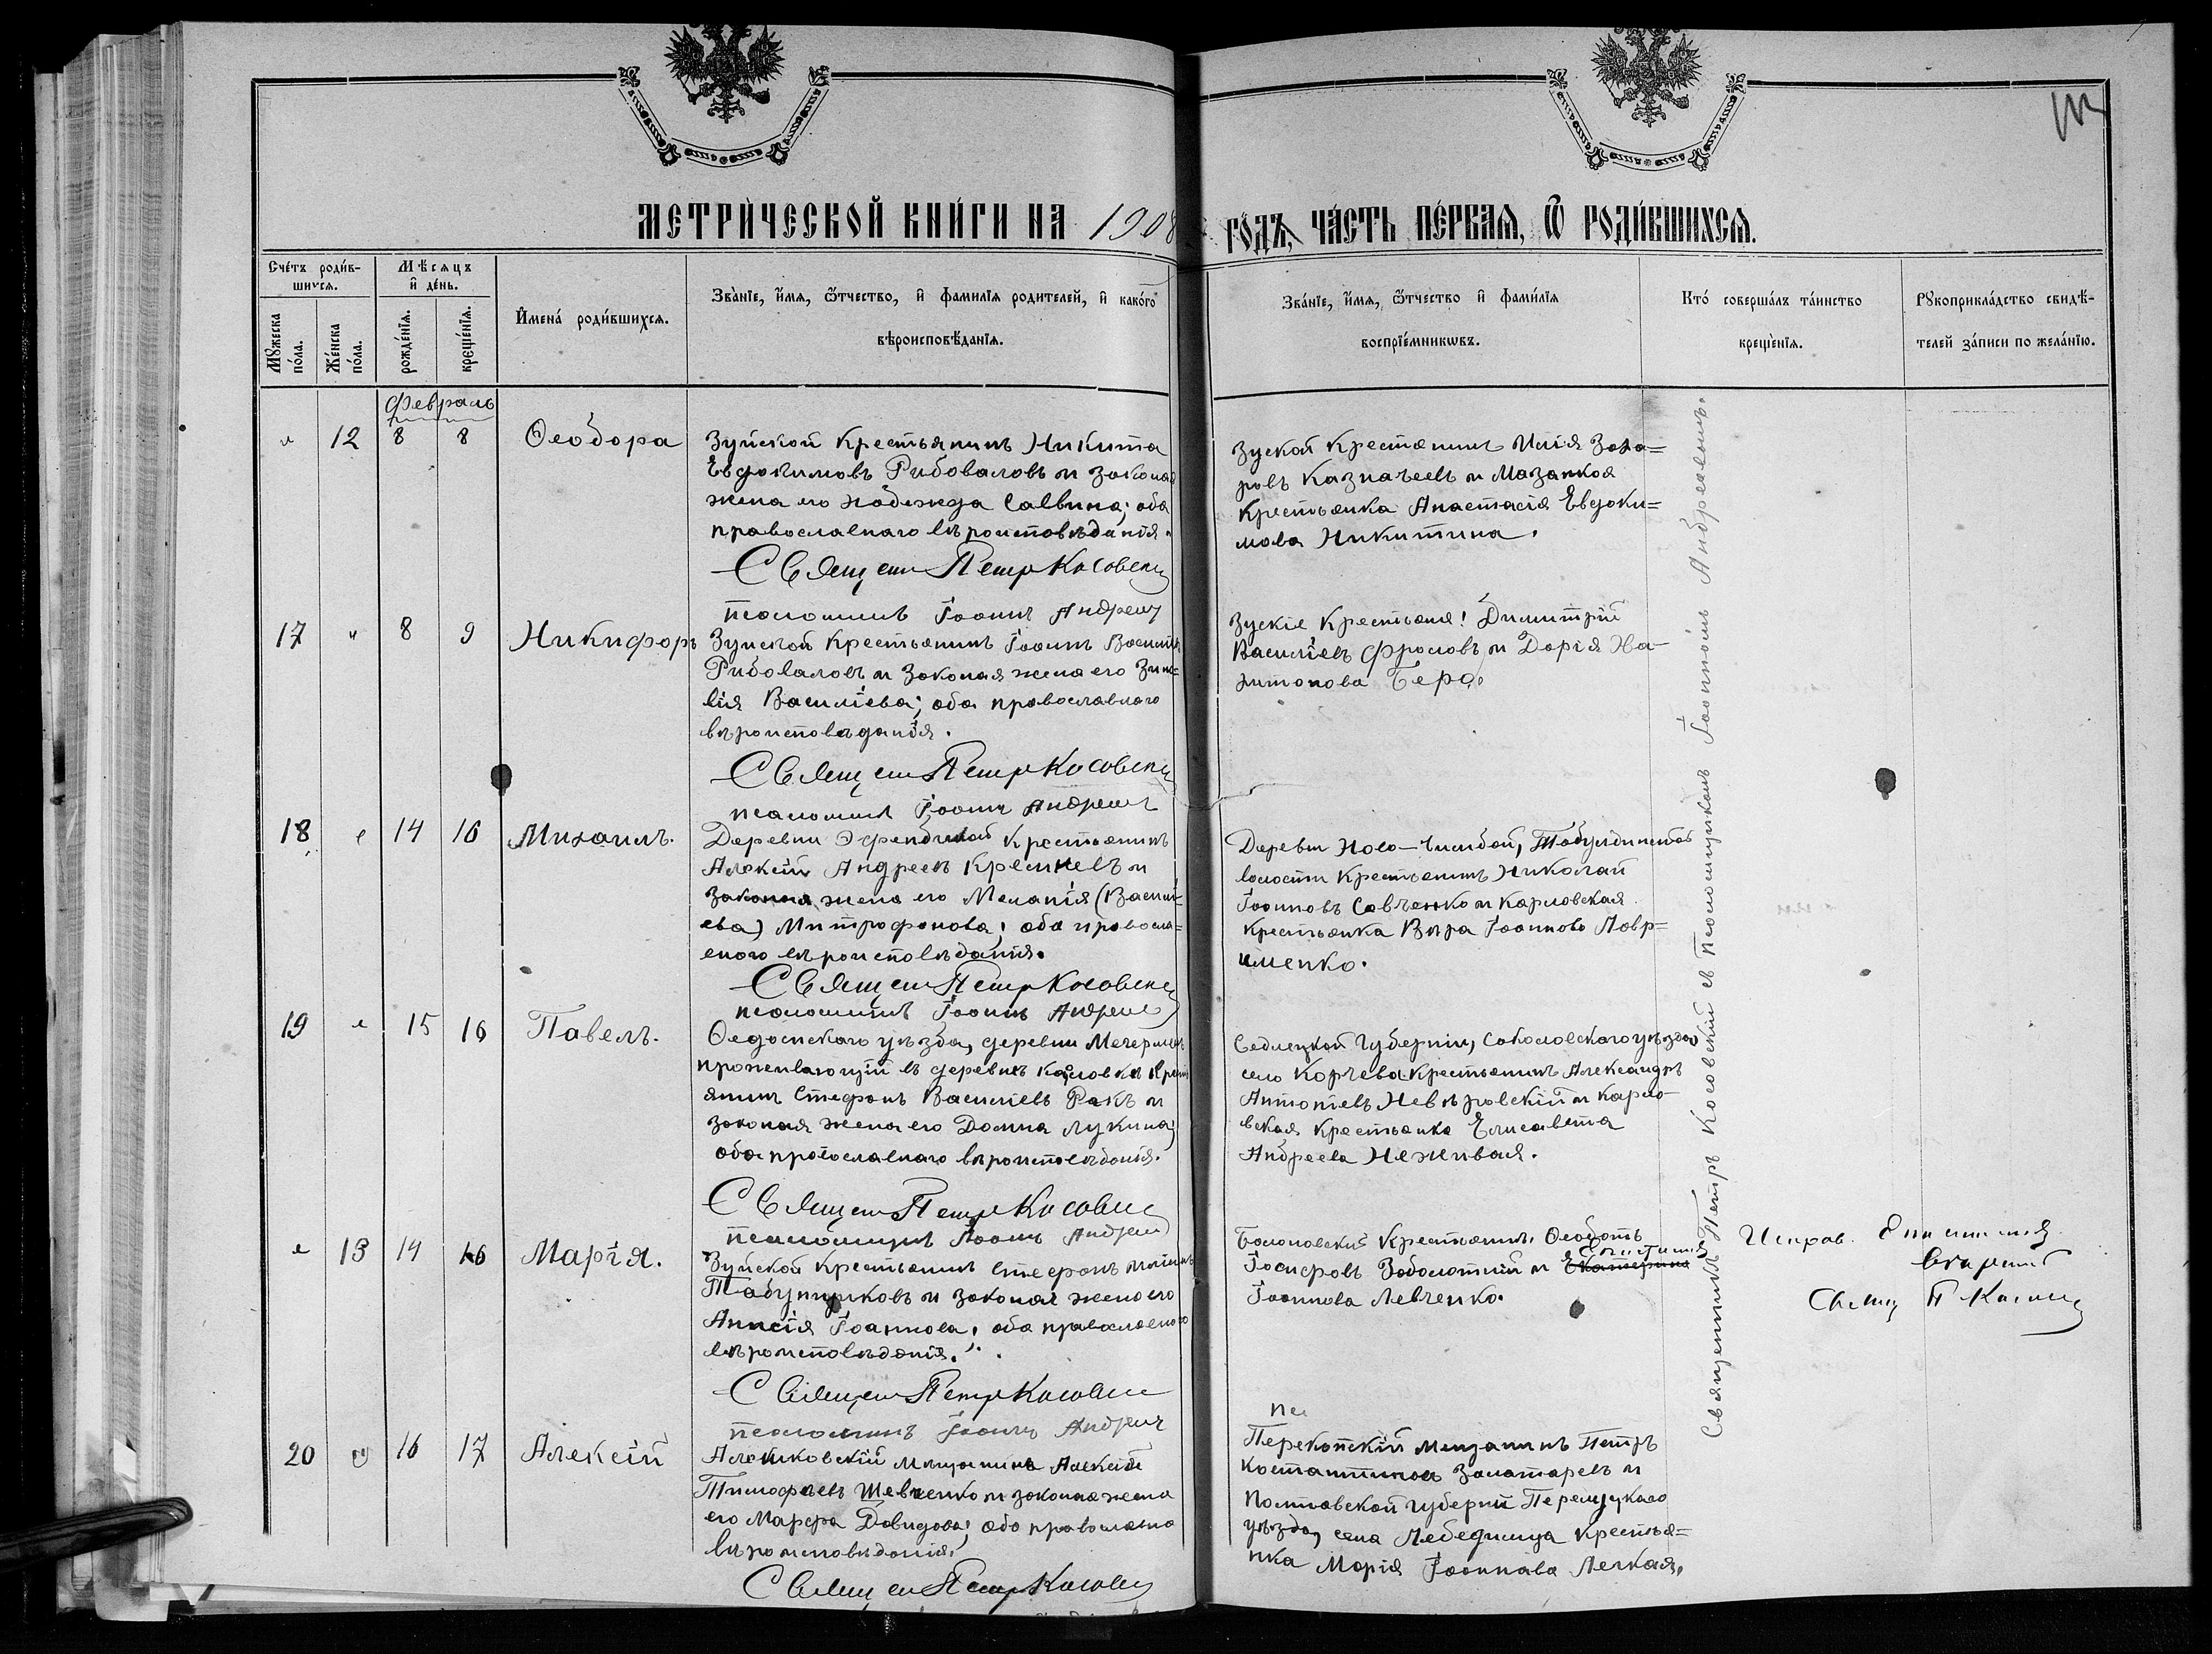 МЕТРИ́ЧЕСКОЙ КНИ́ГИ НА 1908 ГО́ДЪ, ЧА́СТЬ ПЕ́РВАѦ, Ѿ РОДИ́ВШИХСѦ.
Сче́тъ роди́в-
шихсѧ.
Мꙋ́жеска
по́ла.
Же́нска
по́ла.
Мѣ́сѧцъ
и҆ де́нь.
рожде́нїѧ.
креще́нїѧ.
И҆мена̀ роди́вшихсѧ.
Зва́нїе, и҆́мѧ, ѻ҆́тчество, и҆ фамилїѧ родителей, и҆ како́гѡ
вѣроисповѣ́данїѧ.
Зва́нїе, и҆́мѧ, ѻ҆́тчество и҆ фами́лїѧ
воспрїе́мникѡвъ.
Кто̀ соверша́лъ та́инство
креще́нїѧ.
Рꙋкоприкла́дство свидѣ́-
телей за́писи по жела́нїю.
Февраль
12 8 8 Ѳеодора
Зуйской Крестьянинъ Никита
Евдокимовъ Рибоваловъ и законая
жена его Надежда Саввина; оба
православнаго вѣроисповѣданія.
Священ Петр Косовск
псаломщикъ Іоаннъ Андреев
Зуской Крестянинъ Илія Заха=
ровъ Казначеевъ и Мазанкоя
Крестьянка Анастасія Евдоки=
мова Никитина.
17 " 8 9 Никифоръ
Зуйской Крестьянинъ Іоаннъ Василь
Рибоваловъ и законая жена его Зино=
вія Василіева; оба православнаго
вѣроисповѣданія.
Священ Петр Косовск
псаломщ Іоанн Андреев
Зускіе Крестьяня! Димитрій
Василіевъ Фроловъ и Дарія Ха-
ритонова Бера.
18 14 16 Михаилъ.
Деревни Эфендикой Крестьянинъ
Алексій Андреевъ Кремневъ и
законая жена его Меланія (Васил-
ева) Митрофанова; оба правосла=
вного вѣроисповѣданія.
Священ Петр Косовск
псаломщикъ Іоаннъ Андреев
Деревни Ново-Чимбай, Табулдинской
волости Крестьянинъ Николай
Іоанновъ Савченко и Карловская
Крестьянка Вѣра Іоаннова Лавр=
именко.
19 15 16 Павелъ.
Ѳедосискаго уѣзда, деревни
проживающій въ деревнѣ Карловкѣ Крест
янинъ Стефанъ Василіевъ Ракъ и
законая жена его Домна Лукина;
оба православнаго вѣроисповѣданія.
Священ Петр Косовск
псаломщикъ Іоаннъ Андреев
Седлецкой Губерніи, Соколовскаго уѣзда
село Корчева Крестьянинъ Александръ
Антоніевъ Невѣровскій и Карло-
вская Крестьянка Елисавета
Андреева Неживая.
13 14 16 Марія.
Зуйской Крестьянинъ Стефанъ Иліинъ
Табунщиковъ и законая жена его
Анисія Іоаннова; оба православного
вѣроисповѣданія.
Священ Петр Косовск
псаломщикъ Іоаннъ Андреев
Крестьянинъ Ѳеодотъ
Іосифовъ Заболотній и Екатерина
Іоаннова Левченко.
Исправ.
Свящ П Косовск
20 16 17 Алексій
Алешковскій Мищанинъ Алексій
Тимофѣевъ Шевченко и законая жена
его Марфа Давидова; оба православна
вѣроисповѣданія.
Священ Петр Косовск
Пе
Перекопскій мещанинъ Петръ
Костантиновъ Залатаревъ и
Полтавской Губерніи
уѣзда, села Лебедища Крестья=
нка Марія Іоаннава Легкая.
Священникъ Петръ Косовскій съ Псаломщикомъ Іоанномъ Андреевымъ.